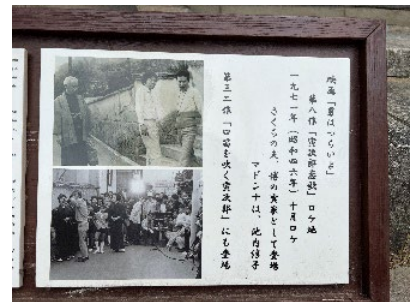 映画「男はつらいよ」
第八作「寅次郎恋歌」ロケ地
一九七一年(昭和四六年)十月ロケ
さくらの夫、博の実家として登場
マドンナは、池内淳子
第三二作「口笛を吹く寅次郎」にも登場